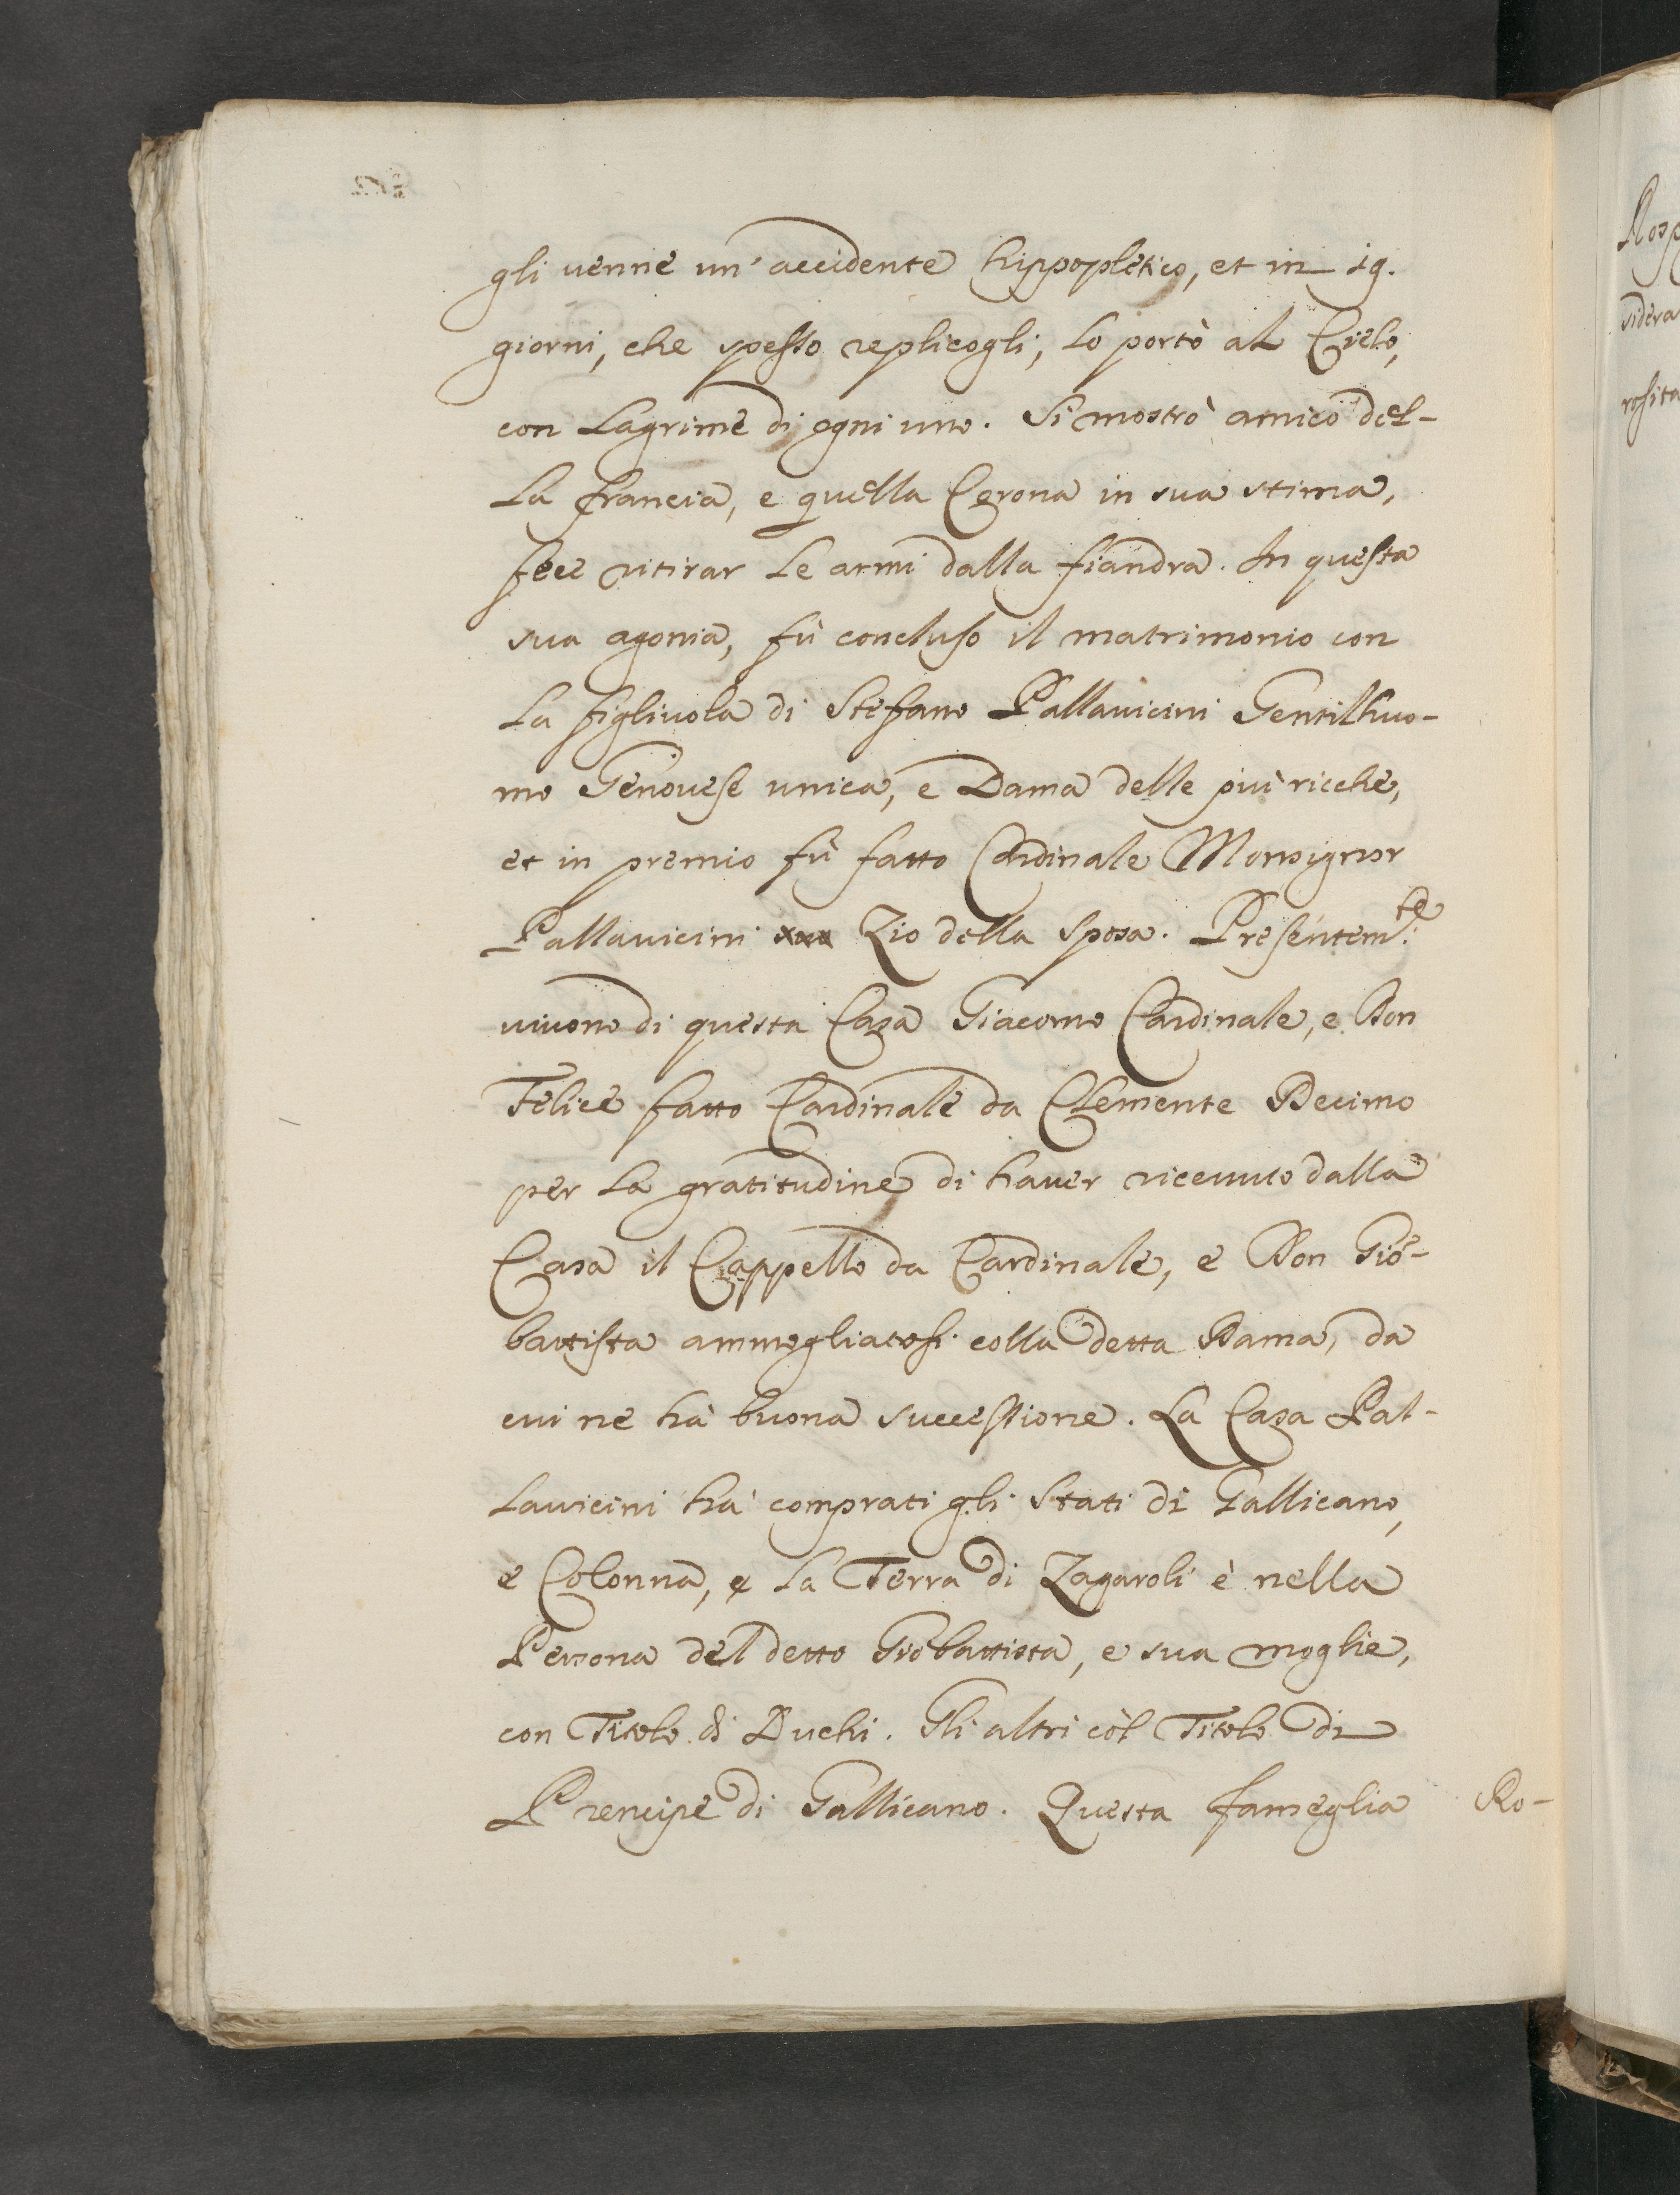 gli venne un' accidente hippopletico, et in 19.
giorni, che spesso replicogli, lo portò al Cielo,
con lagrime di ogni uno. Si mostrò amico del-
la francia, e quella Corona in sua stima,
fece ritirar le armi dalla fiandra. In questa
sua agonia, fù concluso il matrimonio con
la figliuola di Stefano Pallauicini Gentilhuo-
mo Genouese unica, e Dama delle più ricche,
et in premio fù fatto Cardinale Monsignor
Pallauicini Zio della sposa. Presentem.te
uiuono di questa Casa Giacomo Cardinale, e Don
Felice fatto Cardinale da Clemente Decimo
per la gratitudine di hauer riceuuto dalla
Casa il Cappello da Cardinale, e Don Gio-
battista ammogliatosi colla detta Dama, da
cui ne hà buona successione. La Casa Pal-
lauicini hà comprati gli Stati di Gallicano,
e Colonna, e la Terra di Zagaroli è nella
Persona del detto Giobattista, e sua moglie,
con Titolo di Duchi. Gli altri còl Titolo di
Prencipe di Gallicano. Questa fameglia
Ro-